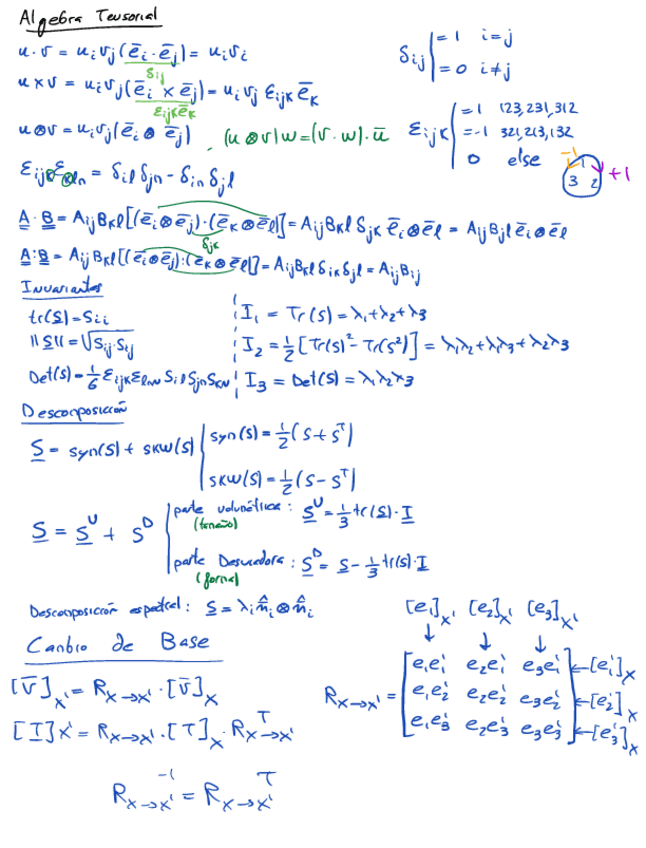 Algebra Tensorial
u · v = u_i v_j (ē_i · ē_j) = u_i v_i
δ_ij
δ_ij | = 1 i=j
= 0 i≠j
u × v = u_i v_j (ē_i × ē_j) = u_i v_j ε_ijk ē_k
ε_ijk ē_k
u⊗v = u_i v_j (ē_i ⊗ ē_j) , (u ⊗ v) w = (v · w) · ū
ε_ijk | = 1 123, 231, 312
= -1 321, 213, 132
0 else
-1 1 +1
3 2
δ_il δ_jn - δ_in δ_jl
A · B = A_ij B_kl [(ē_i ⊗ ē_j) · (ē_k ⊗ ē_l)] = A_ij B_kl δ_jk ē_i ⊗ ē_l = A_ij B_jl ē_i ⊗ ē_l
δ_jk
A : B = A_ij B_kl [(ē_i ⊗ ē_j) : (ē_k ⊗ ē_l)] = A_ij B_kl δ_ik δ_jl = A_ij B_ij
Invariantes
tr(S) = S_ii
I_1 = Tr(S) = λ_1 + λ_2 + λ_3
||S|| = √S_ij · S_ij
I_2 = 1/2 [Tr(S)² - Tr(S²)] = λ_1 λ_2 + λ_1 λ_3 + λ_2 λ_3
Det(S) = 1/6 ε_ijk ε_lnm S_il S_jn S_km
I_3 = Det(S) = λ_1 λ_2 λ_3
Descomposición
S = syn(S) + skw(S) | syn(S) = 1/2 (S + S^T)
skw(S) = 1/2 (S - S^T)
S = S^U + S^D | parte volunétrica : S^U = 1/3 tr(S) · I
(tamaño)
parte Desviadora : S^D = S - 1/3 tr(S) · I
(forma)
Descomposición espectral : S = λ_i n̂_i ⊗ n̂_i
Cambio de Base
[v̄]_x' = R_x→x' · [v̄]_x
[T]x' = R_x→x' · [T]_x · R_x→x'^T
R_x→x'^-1 = R_x→x'^T
[e_1]_x' [e_2]_x' [e_3]_x'
↓ ↓ ↓
R_x→x' = [ e_1e_1' e_2e_1' e_3e_1' ] ← [e_1']_x
e_1e_2' e_2e_2' e_3e_2' ← [e_2']_x
e_1e_3' e_2e_3' e_3e_3' ← [e_3']_x